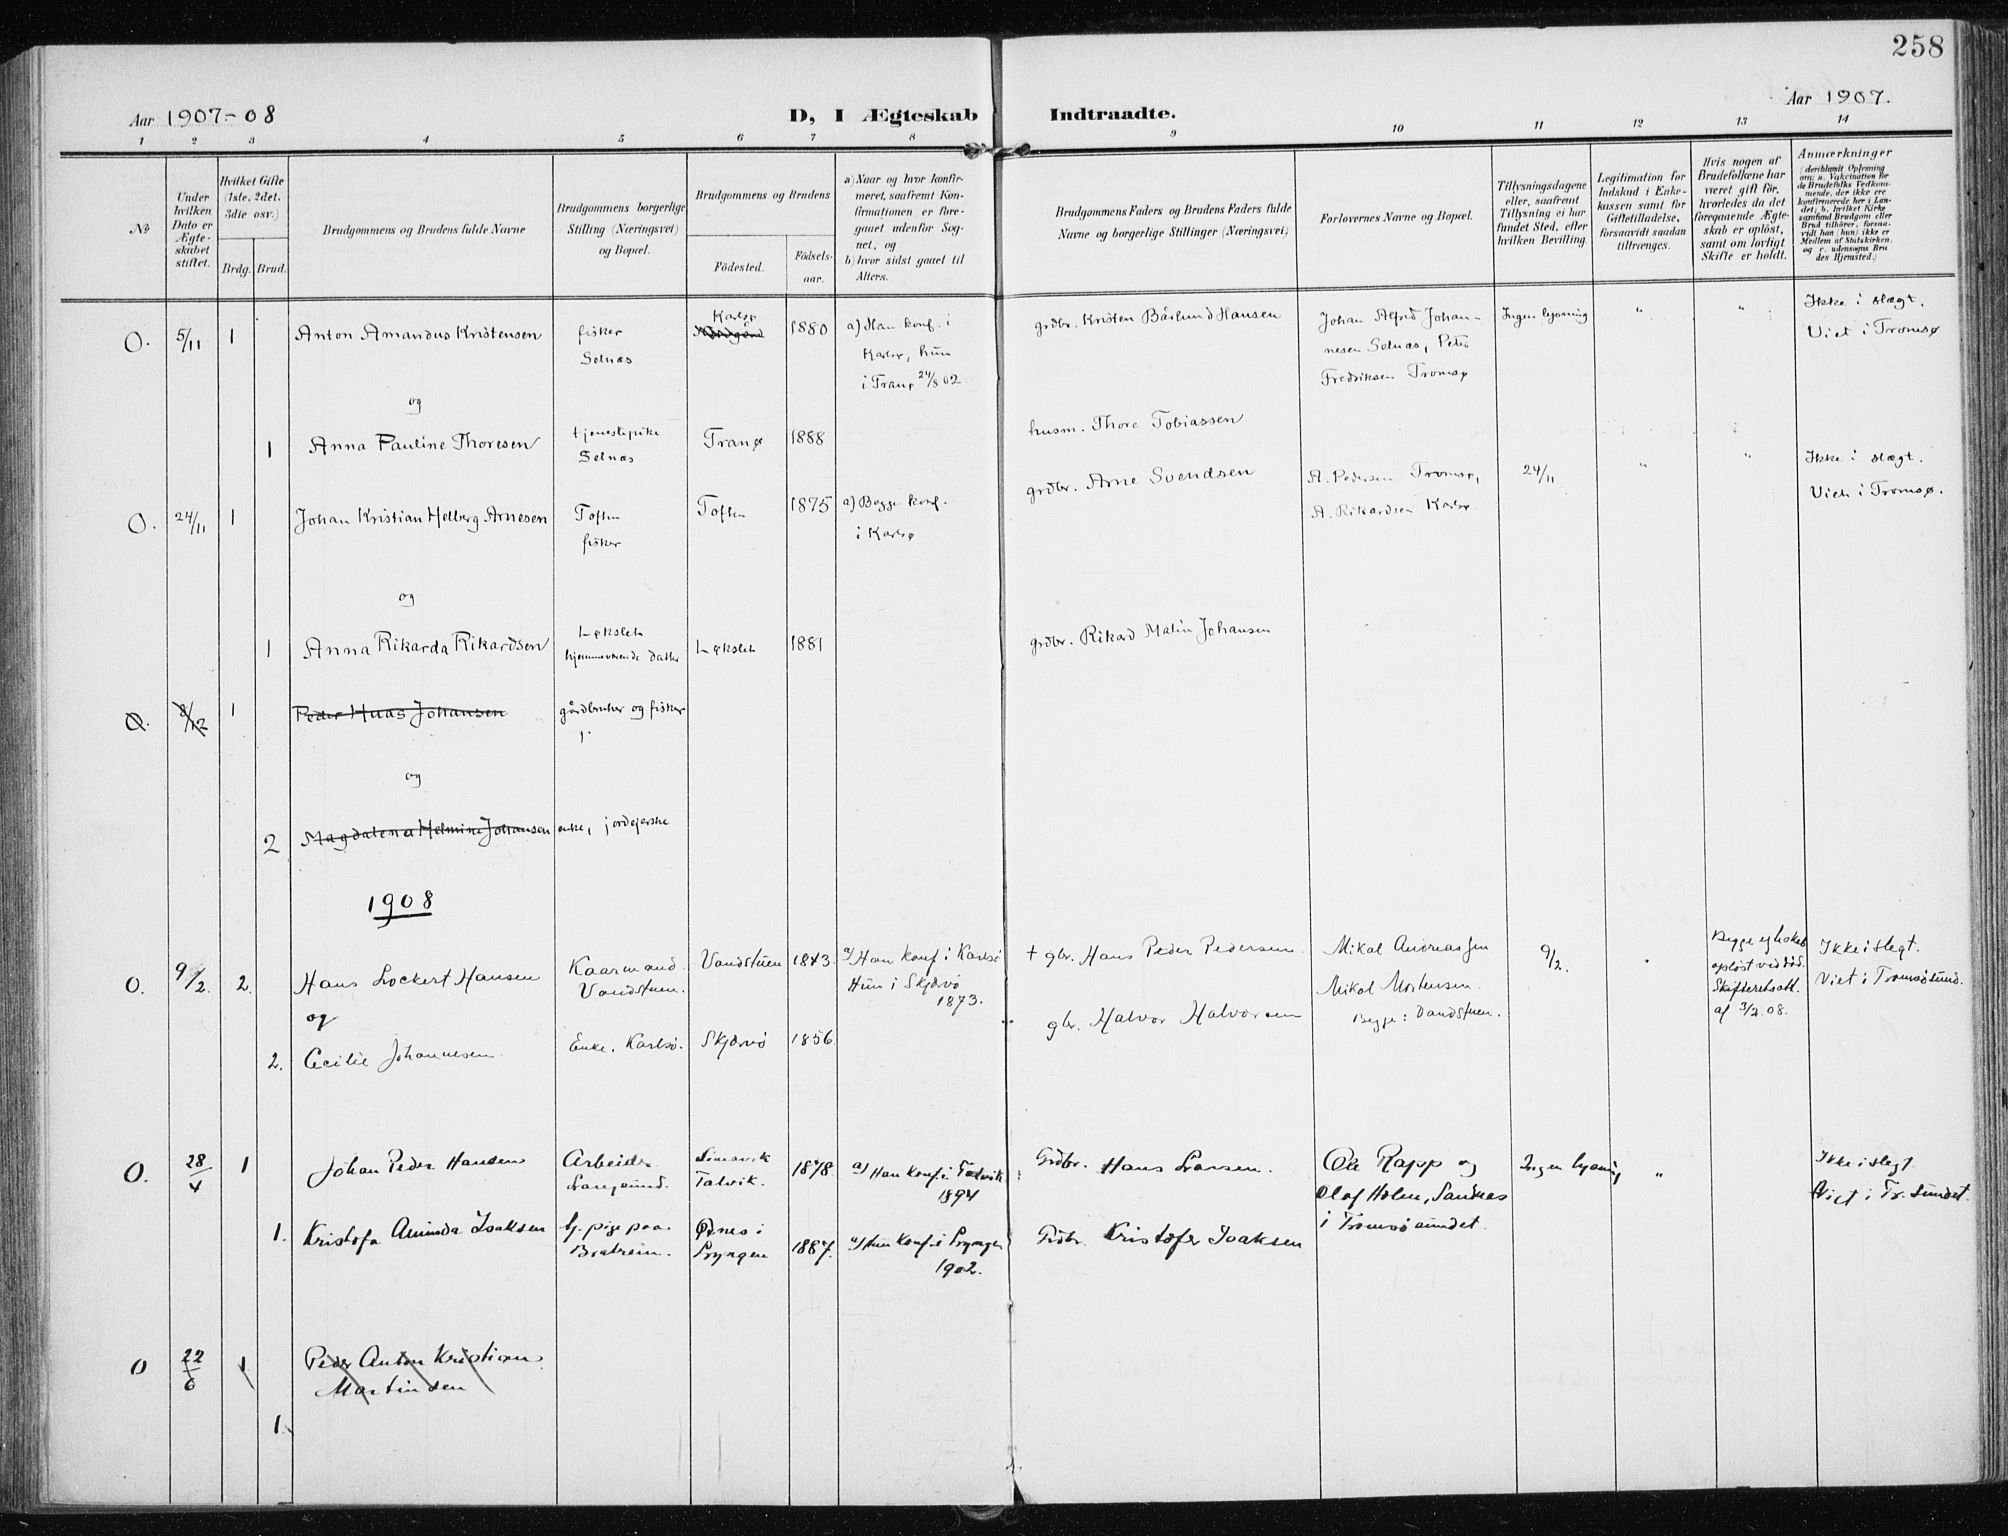 258
Aar 1907-08 D, I Ægteskab Indtraadte. Aar 1907.
1 2 3 4 5 6 7 8 9 10 11 12 13 14
No
Under hvilken Dato er Ægteskabet stiftet.
Hvilket Gifte (1ste, 2det, 3die osv.)
Brdg. Brud.
Brudgommens og Brudens fulde Navne
Brudgommens borgerlige Stilling (Næringsvei) og Bopæl.
Brudgommens og Brudens
Fødested. Fødselsaar.
a) Naar og hvor konfirmeret, saafremt Konfirmationen er foregaaet udenfor Sognet, og
b) hvor sidst gaaet til Alters.
Brudgommens Faders og Brudens Faders fulde Navne og borgerlige Stillinger (Næringsvei)
Forlovernes Navne og Bopæl.
Tillysningsdagene eller, saafremt Tillysning ei har fundet Sted, efter hvilken Bevilling.
Legitimation for Indskud i Enkekassen samt for Giftetilladelse, forsaavidt saadan tiltrænges.
Hvis nogen af Brudefolkene har været gift før, hvorledes da det foregaaende Ægteskab er opløst, samt om lovligt Skifte er holdt.
Anmærkninger
(deriblandt Oplysning om: a. Vakcination for de Brudefolks Vedkommende, der ikke ere konfirmerede her i Landet; b. hvilket Kirkesamfund Brudgom eller Brud tilhører, forsaavidt han (hun) ikke er Medlem af Statskirken, og c. udensogns Brudes Hjemsted.)
O. 5/11 1 Anton Amandus Kristensen
fisker
Selnæs
Karlsø
1880
a) Han konf. i
Karlsø, hun
i Tranø 24/8 02
grdbr. Kristen Bårlund Hansen
Johan Alfred Johan-
nesen Selnæs, Peter
Fredriksen Tromsø
Ingen lysning
"
"
Ikke i slægt.
Viet i Tromsø
og
1 Anna Pauline Thoresen
tjenestepike
Selnæs
Tranø 1888
husm. Thore Tobiassen
O. 24/11 1 Johan Kristian Helberg Arnesen
Toften
fisker
Toften 1875
a) Begge konf.
i Karlsø
grdbr. Arne Svendsen
A. Pedersen Tromsø,
A. Rikardsen Karlsø
24/11
"
"
Ikke i slægt.
Viet i Tromsø.
og
1 Anna Rikarda Rikardsen
Løkslet
hjemmeværende datter
Løkslet 1881
grdbr. Rikard Malin Johansen
O. 8/12 1 Peder Huas Johansen
gårdbruker og fisker
og
2 Magdalena Helmine Johansen enke, jordejerske
1908
O. 9/2. 2. Hans Lockert Hansen
Kaarmand.
Vandstuen.
Vandstuen 1843.
a) Han konf i Karlsö
Hun i Skjærvö
1873.
† gbr. Hans Peder Pedersen
Mikal Andreassen
Mikal Mortensen.
Begge: Vandstuen.
9/2.
"
Begge egteskab
opløst ved død.
Skifteretsatt.
af 3/2 08.
Ikke i slegt.
Viet i Tromsösund.
og
2. Cecilie Johannesen
Enke. Karlsö. Skjærvö 1856.
gbr. Halvor Halvorsen
O. 28/4 1 Johan Peder Hansen
Arbeider
Langsund.
Talvik.
1878.
a) Han konf. i Talvik
1894
Grdbr. Hans Larsen.
Ole Rapp og
Olaf Holm, Sandnæs
i Tromsösundet.
Ingen lysning
"
Ikke i slegt.
Viet i Tr. sundet.
1. Kristofa Aminda Isaksen
tj. pige paa
Bratrein.
i
Lyngen
1887.
a) Hun konf. i Lyngen
1902.
Grdbr. Kristofer Isaksen
O 22/6 1 Peder Anton Kristian
Martinsen
1.